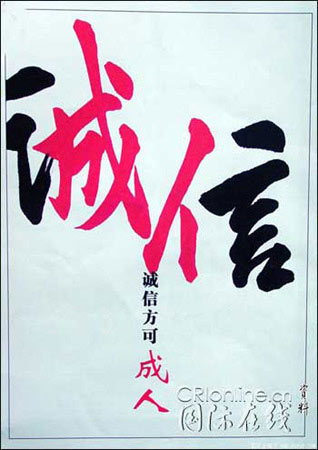 诚信
诚信方可成人
CRIonline.cn
国际在线
资料